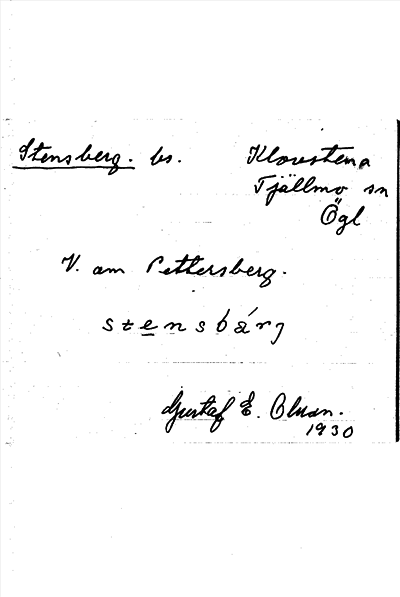 Stensberg. bs. Klovstena
Tjällmo sn
Ögl
V. om Pettersberg.
stensbárj
Gustaf E. Olsson.
1930